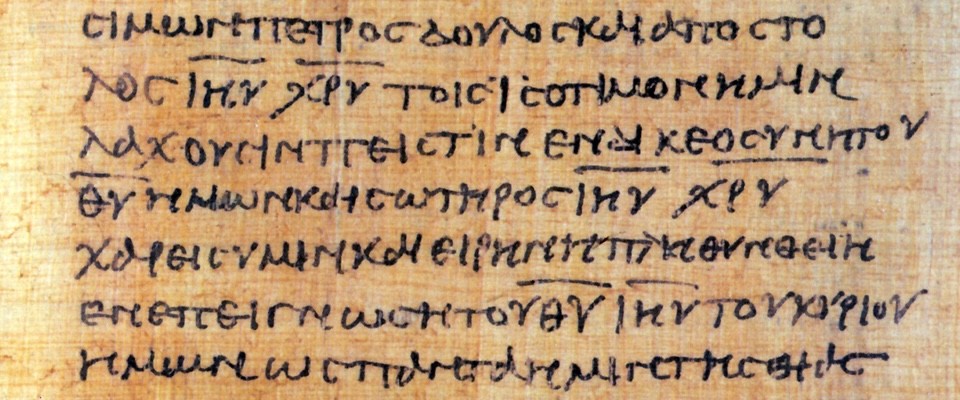 ϹΙΜΩΝΠΕΤΡΟϹΔΟΥΛΟϹΚΑΙΑΠΟϹΤΟ
ΛΟϹΙ̅Η̅Υ̅ Χ̅Ρ̅Υ̅ ΤΟΙϹΪϹΟΤΙΜΟΝΗΜΙΝ
ΛΑΧΟΥϹΙΝΠΕΙϹΤΙΝΕΝΔΙΚΕΟϹΥΝΗΤΟΥ
Θ̅Υ̅ΗΜΩΝΚΑΙϹΩΤΗΡΟϹΙ̅Η̅Υ̅ Χ̅Ρ̅Υ̅
ΧΑΡΕΙϹΥΜΙΝΚΑΙΕΙΡΗΝΗΠΛΗΘΥΝΘΕΙΗ
ΕΝΕΠΕΙΓΝΩϹΗΤΟΥΘ̅Υ̅Ι̅Η̅Υ̅ΤΟΥΚΥΡΙΟΥ
ΗΜΩΝΩϹΠΑΝΤΑΗΜΙΝΤΗϹΘΕΙΑϹ